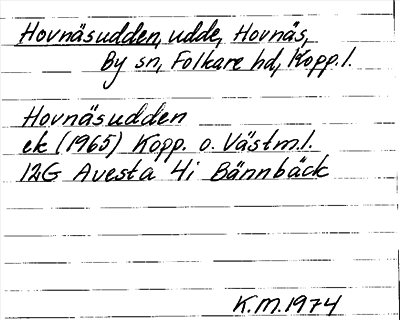 Hovnäsudden, udde, Hovnäs,
By sn, Folkare hd, Kopp. l.
Hovnäsudden
ek (1965) Kopp. o. Västm. l.
12G Avesta 4i Bännbäck
K.M. 1974